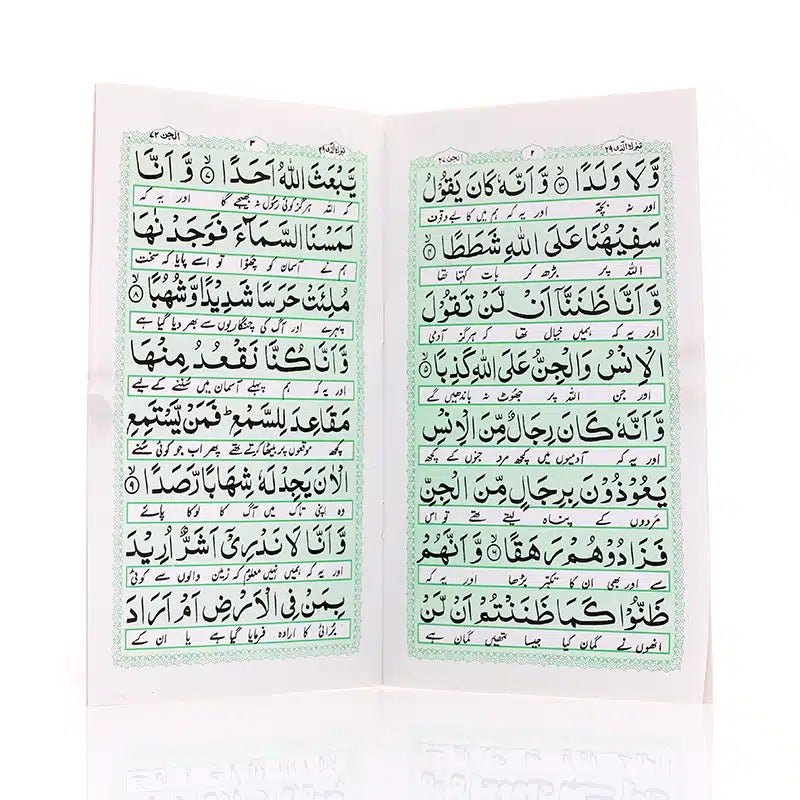 تبٰرك الّذی ۲۹ ۲ الجن ۲۷
وَّلَا وَلَدًا ۳ وَّاَنَّهٗ كَانَ يَقُوْلُ
اور نہ بچّہ اور یہ کہ ہم میں کا بے وقوف
سَفِيْهُنَا عَلَى اللهِ شَطَطًا ۴
اللہ پر بڑھ کر بات کہتا تھا
وَّاَنَّا ظَنَنَّاۤ اَنْ لَّنْ تَقُوْلَ
اور یہ کہ ہمیں خیال تھا کہ ہرگز آدمی
الْاِنْسُ وَالْجِنُّ عَلَى اللهِ كَذِبًا ۵
اور جن اللہ پر جھوٹ نہ باندھیں گے
وَّاَنَّهٗ كَانَ رِجَالٌ مِّنَ الْاِنْسِ
اور یہ کہ آدمیوں میں کچھ مرد جنوں کے کچھ
يَعُوْذُوْنَ بِرِجَالٍ مِّنَ الْجِنِّ
مردوں کے پناہ لیتے تھے تو اس
فَزَادُوْهُمْ رَهَقًا ۶ وَّاَنَّهُمْ
سے اور بھی ان کا تکبّر بڑھا اور یہ کہ
ظَنُّوْا كَمَا ظَنَنْتُمْ اَنْ لَّنْ
انھوں نے گمان کیا جیسا تمھیں گمان ہے
تبٰرك الّذی ۲۹ ۳ الجن ۷۲
يَّبْعَثَ اللهُ اَحَدًا ۷ وَّاَنَّا
کہ اللہ ہرگز کوئی رسول نہ بھیجے گا اور یہ کہ
لَمَسْنَا السَّمَآءَ فَوَجَدْنٰهَا
ہم نے آسمان کو چھوا تو اسے پایا کہ سخت
مُلِئَتْ حَرَسًا شَدِيْدًا وَّشُهُبًا ۸
پہرے اور آگ کی چنگاریوں سے بھر دیا گیا ہے
وَّاَنَّا كُنَّا نَقْعُدُ مِنْهَا
اور یہ کہ ہم پہلے آسمان میں سننے کے لیے
مَقَاعِدَ لِلسَّمْعِ ؕ فَمَنْ يَّسْتَمِعِ
کچھ موقعوں پر بیٹھا کرتے تھے پھر اب جو کوئی سنے
الْاٰنَ يَجِدْ لَهٗ شِهَابًا رَّصَدًا ۹
وہ اپنی تاک میں آگ کا لوکا پائے
وَّاَنَّا لَا نَدْرِىْۤ اَشَرٌّ اُرِيْدَ
اور یہ کہ ہمیں نہیں معلوم کہ زمین والوں سے کوئی
بِمَنْ فِى الْاَرْضِ اَمْ اَرَادَ
برائی کا ارادہ فرمایا گیا ہے یا ان کے